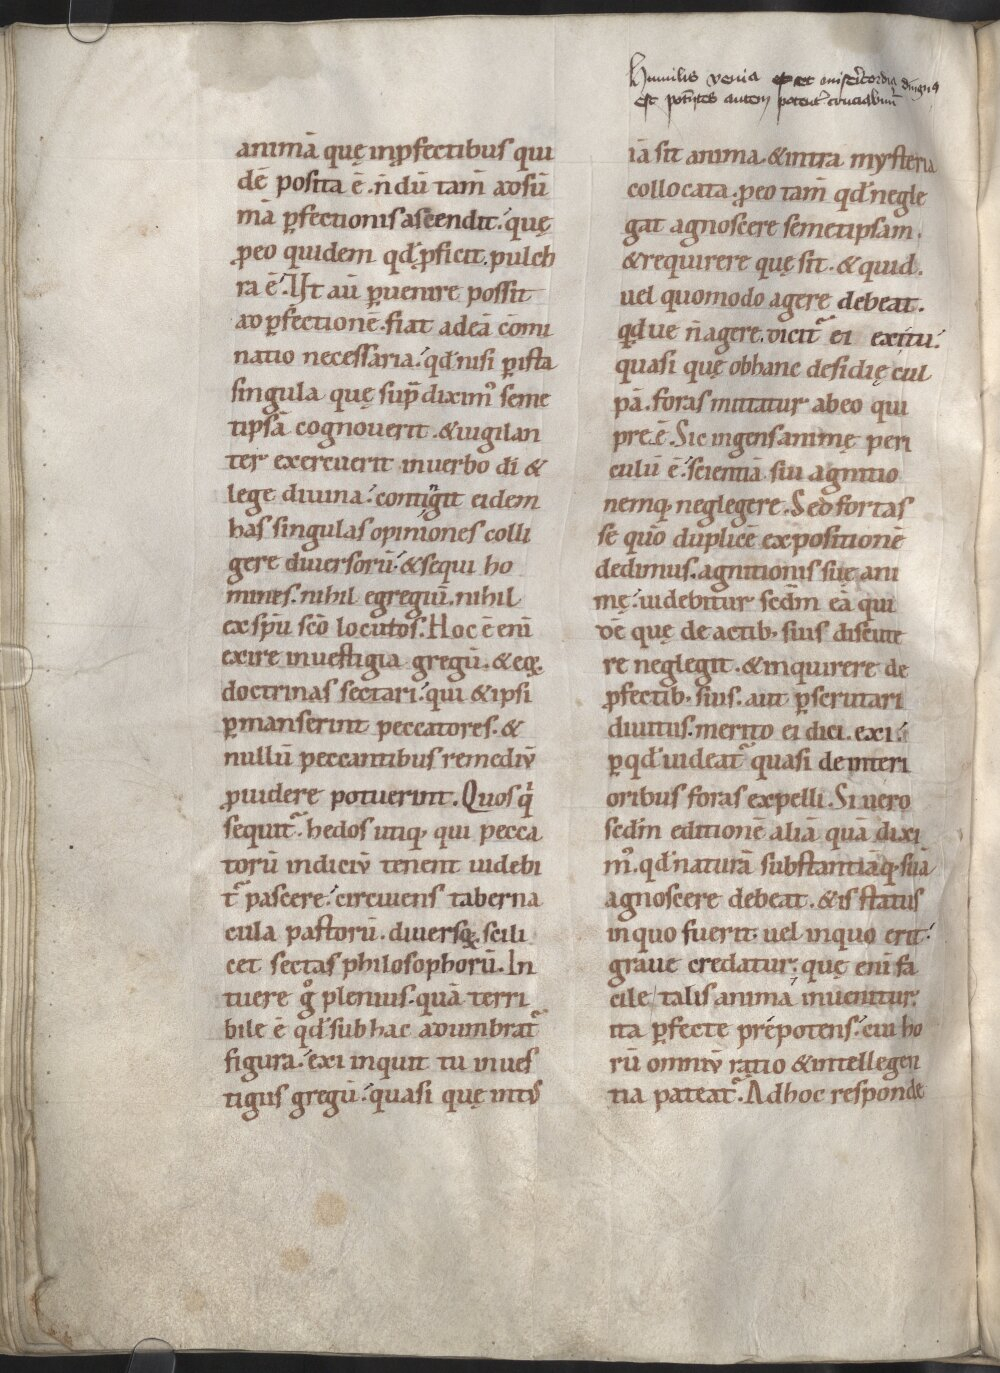 Humilis venia et misericordia dignus
est potentes autem potenter cruciabunt
animā quę inꝓfectibus qui
dē posita ē. n̄dū tam̄ adsū
mā ꝑfectionis ascendit. quę
ꝓeo quidem qd̄ ꝓficit. pulch
ra ē. Ut aū ꝑuenire possit
ad ꝑfectionē. fiat adeā cōmi
natio necessaria. qd̄ nisi ꝑista
singula quę sup̄ diximꝰ seme
tipsā cognouerit. & uigilan
ter exercuerit inuerbo dī &
lege diuina. contingit eidem
has singulas opiniones colli
gere diuersorū. & sequi ho
mines. nihil egregiū. nihil
ex sp̄u sc̄o locutos. Hoc ē enī
exire inuestigia gregū. & eoꝝ
doctrinas sectari. qui & ipsi
ꝑmanserint peccatores. &
nullū peccantibus remediū
ꝓuidere potuerint. Quos q̇
sequit᷑. hedos utiqꝫ qui pecca
torū indiciū tenent uidebi
t᷑ pascere. circuiens taberna
cula pastorū. diuersaꝝ scili
cet sectas philosophorū. In
tuere gͦ plenius. quā terri
bile ē qd̄ sub hac adumbrat᷑
figura. exi inquit tu inues
tigiis gregū. quasi quę int᷑
iā sit anima. & intra mysteria
collocata. ꝓeo tam̄ qd̄ negle
gat agnoscere semetipsam.
& requirere quę sit. & quid.
uel quomodo agere debeat.
qd̄ue n̄ agere. dicit᷑ ei exitu.
quasi quę obhanc desidię cul
pā. foras mittatur abeo qui
pre.ē. Sic ingens animę peri
culū ē. scientiā sui agnitio
nemqꝫ neglegere. Sed fortas
se qm̄ duplicē expositionē
dedimus. agnitionis suę ani
mę. uidebitur sedm̄ eā qui
dē quę de actibꝫ suis discute
re neglegit. & inquirere de
ꝓfectibꝫ suis. aut ꝑscrutari
diuitius. merito ei dici. exi.
ꝑqd̄ uideat᷑ quasi de interi
oribus foras expelli. Si uero
sedm̄ editionē aliā quā dixi
mꝰ. qd̄ naturā substantiāqꝫ suā
agnoscere debeat. & is status
inquo fuerit. uel inquo erit.
graue credatur. quę enī fa
cile talis anima inuenitur.
ita ꝑfecte prepotens. cui ho
rū omniū ratio & intellegen
tia pateat᷑. Adhoc responde